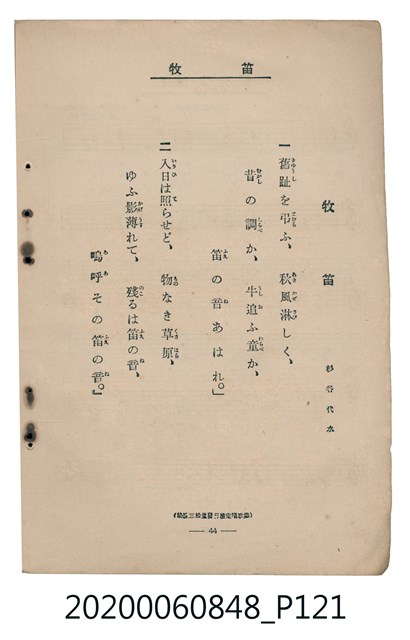 牧笛
牧笛
杉谷代水
一 舊趾を弔ふ、秋風淋しく、
昔の調か、牛追ふ童か、
笛の音あはれ。」
二 入日は照らせど、物なき草原、
ゆふ影薄れて、殘るは笛の音、
嗚呼その笛の音。』
— 44 —
20200060848_P121